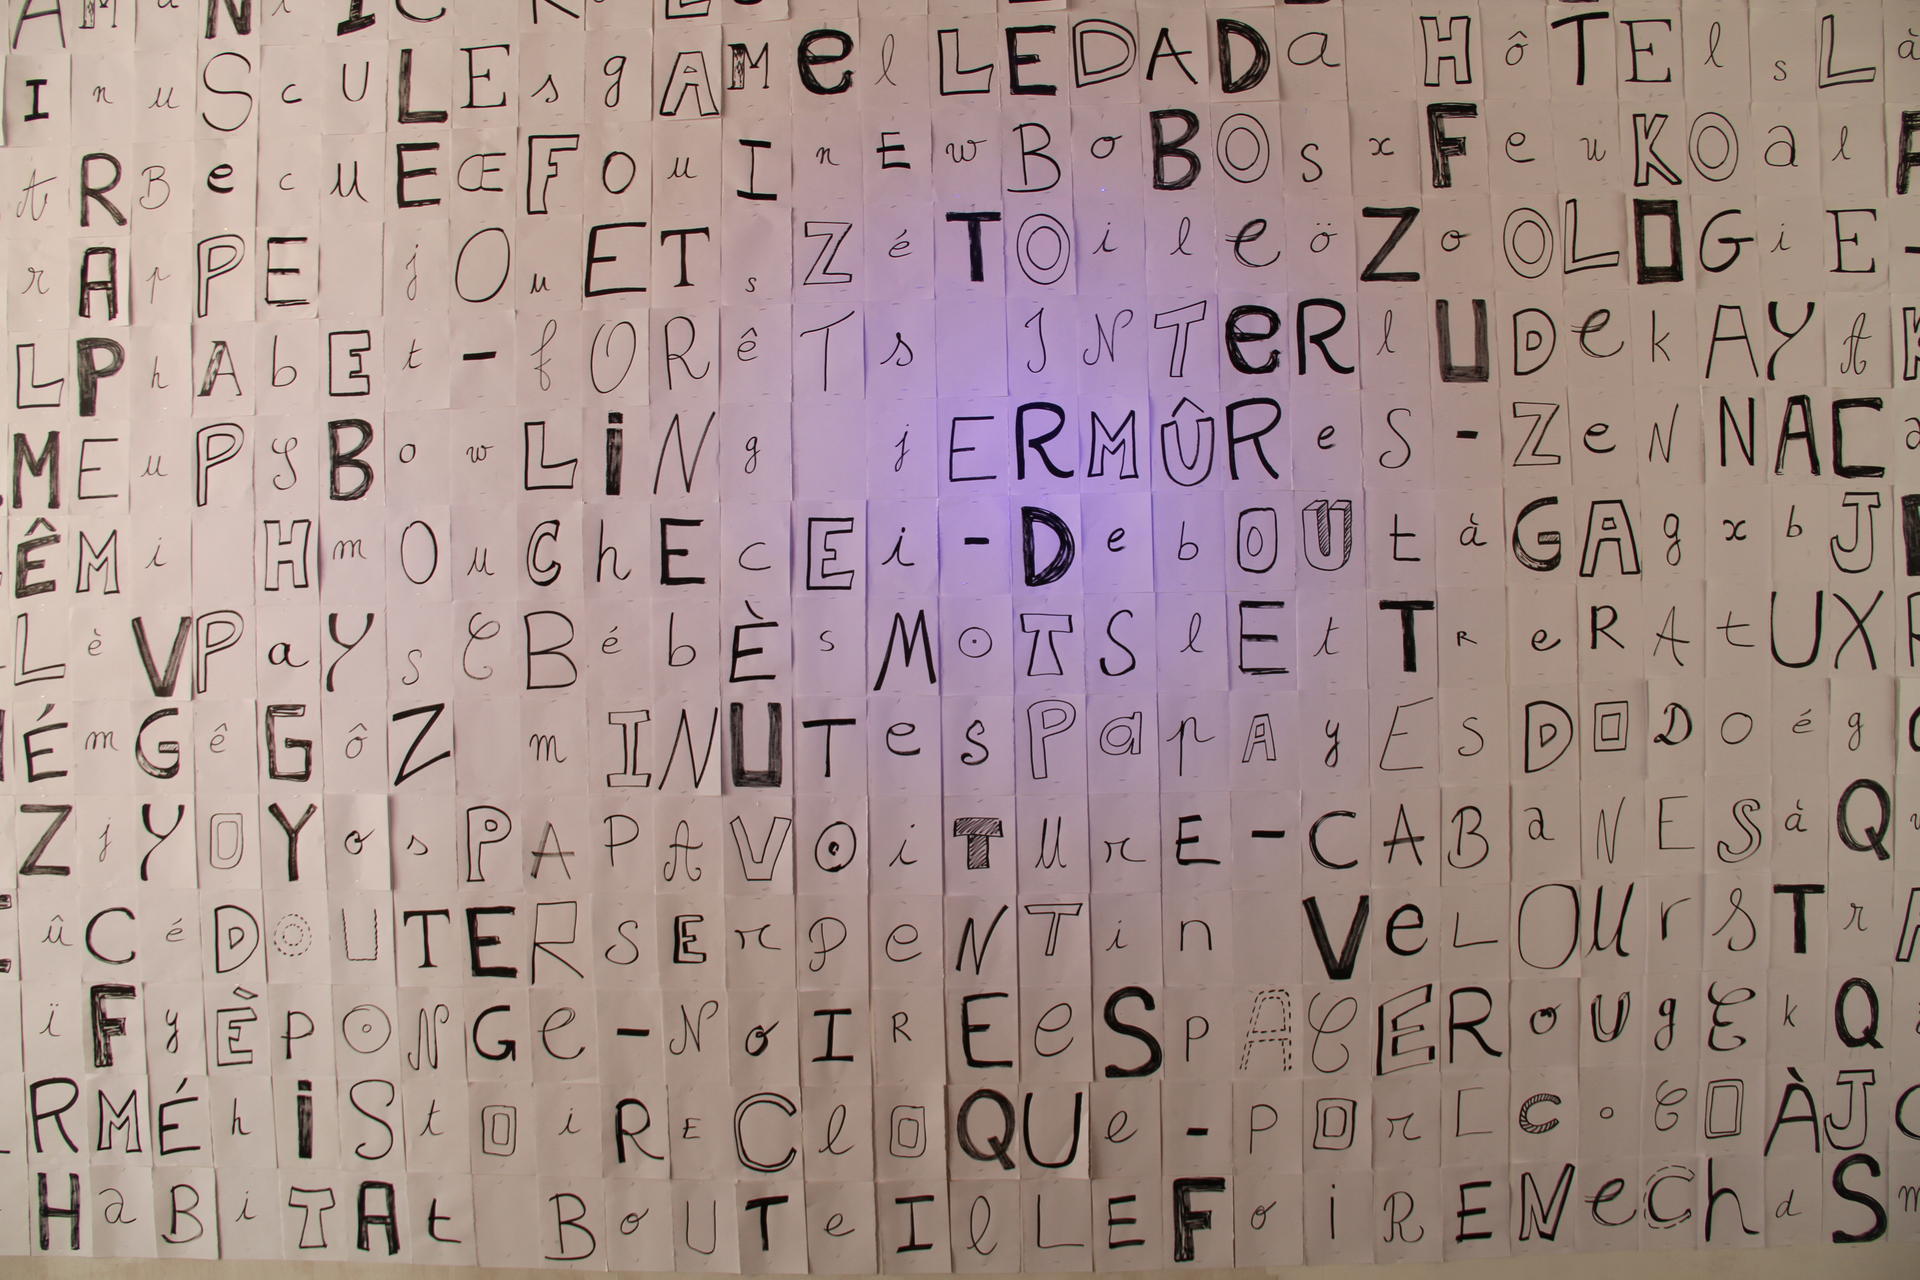 InuScULEsgAMelLEDADa HôTElsL
tRBecuEŒFOuInEwBoBOsxFeuKOal
rApPE jOuETs ZéTOileöZoOLOGiE-
LPhAbEt-fORêTs INTERlUDekAYA
MEuPSBowLiNg jERMÛReS-ZeNNAC
ÊMi HmOuChEcEi-DebOUtàGAgxbJ
LèVPaYsCBébÈsMoTSlEtTR eRAtUX
ÉmGêGôZ mINUTesPapAyESDODOég
ZjYOYosPAPAVOiTUrE-CABaNESàQ
ûCéDOUTERSErpeNTin VeLOUrSTr
ïFyÊPONGe-NoIREeSPACERoUgEkQ
RMÉhiStOiREClOQUe-POrLCoCOÀJ
HaBiTAt BoUTeILLEFoiRENeChdS